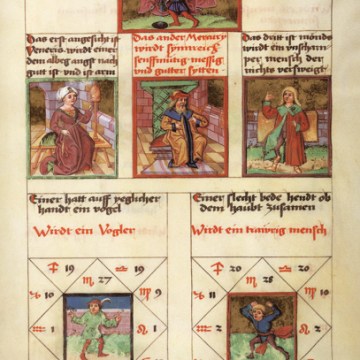 Das erst angesicht ist
Veneris wirdt einer
dem alweg angst nach
gutt ist vnd ist arm
Das ander Mercury
wirdt synnreich
senfftmutig messig
vnd gutter sytten
Das dritt ist mönds
wirdt ein vnscham
per mensch der
nichts verschweigt
Einer hatt auff yeglicher
handt ein vogel
Wirdt ein Vogler
Einer slecht bede hendt ob
dem haubt zusamen
Wirdt ein trawrig mensch
19 19
27
10 9
1 1
20 20
28
11 10
2 1